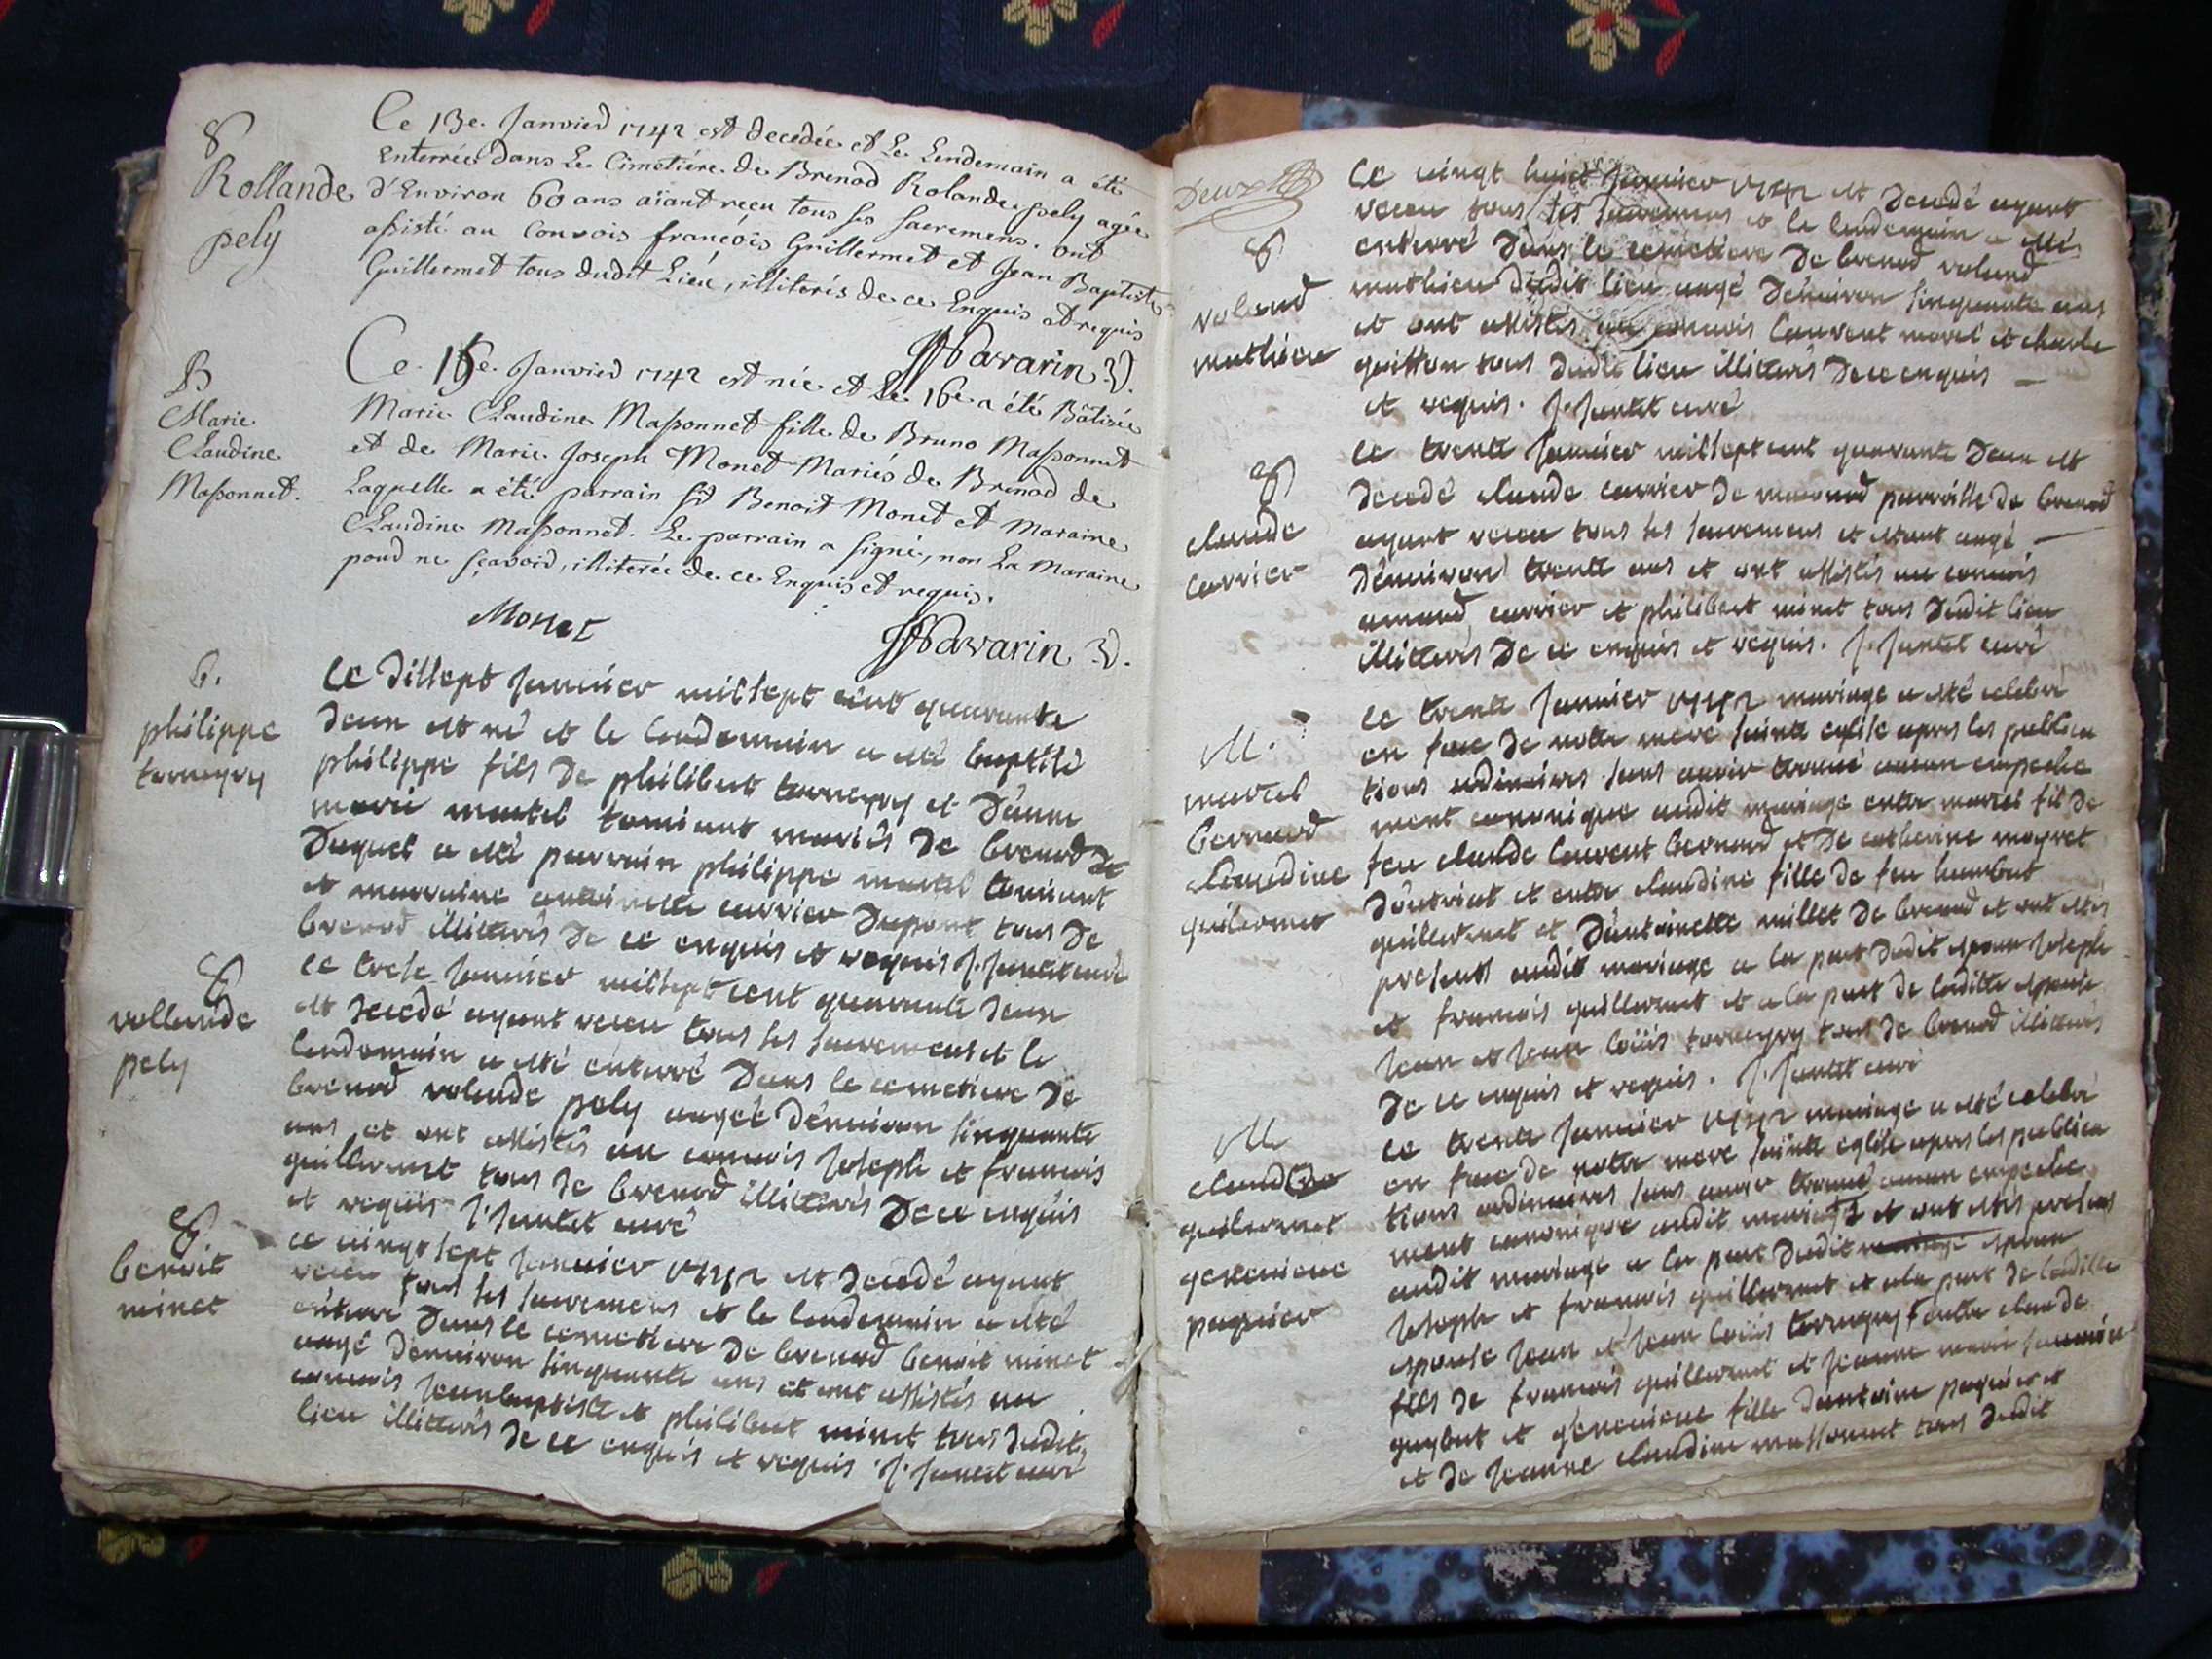 Ce 13e. Janvier 1742 est decedée et Le Lendemain a été
Enterrée dans Le Cimetiére de Brenod Rolande pely agée
Rollande
pely
d'Environ 60 ans aïant reçu tous ses sacremens. ont
assisté au Convois françois Guillermet et Jean Baptiste
Guillermet tous dudit Lieu, illiterés de ce Enquis et requis
Navarin
Ce 15e. Janvier 1742 est née et Le 16e a été Bâtisée
B
Marie
Claudine
Massonnet.
Marie Claudine Massonnet fille de Bruno Massonnet
et de Marie Joseph Monet Mariés de Brenod de
Laquelle a été parrain sr Benoit Monet et Maraine
Claudine Massonnet. Le parrain a signé, non La Maraine
pour ne sçavoir, illiterée de ce Enquis et requis.
Monet
Navarin
b.
philippe
torneyry
Ce dissept janvier mil sept cent quarante
deux est né et le lendemain a esté baptisé
philippe fils de philibert torneyry et d'anne
marie martel tomiant mariés de brenod de
Duquel a esté parrain philippe martel tomiant
et marraine antoinette carrier Dupont tous de
brenod illitterés de ce enquis et requis J. Jantet curé
rollande
pely
ce trese janvier mil sept cent quarante deux
est decedé ayant receu tous ses sacremens et le
lendemain a esté enterré dans le cemetiere de
brenod rolande pely aagée d'environ sinquante
ans et ont assistés au convois joseph et francois
guillermet tous de brenod illitterés de ce enquis
et requis J. Jantet curé
benoit
minet
ce vingt sept janvier 1742 est decedé ayant
receu tous ses sacremens et le lendemain a esté
enterré dans le cemetiere de brenod benoit minet
aagé d'environ sinquante ans et ont assistés au
convois jeanbaptiste et philibert minet tous dudit
lieu illitterés de ce enquis et requis. J. Jantet curé
Deux
roland
mathieu
ce vingt huict janvier 1742 est decedé ayant
receu tous ses sacremens et le lendemain a esté
enterré dans le cemetiere de brenod roland
mathieu dudit lieu aagé d'environ sinquante ans
et ont assistés au convois laurent morel et charle
guitton tous dudit lieu illitterés de ce enquis
et requis. J. Jantet curé
claude
carrier
ce trente janvier mil sept cent quarante deux est
decedé claude carrier de parroisse de brenod
ayant receu tous ses sacremens et estant aagé
d'environ trente ans et ont assistés au convois
armand carrier et philibert minet tous dudit lieu
illitterés de ce enquis et requis. J. Jantet curé
M.
marcel
bernard
claudine
guilermet
ce trente janvier 1742 mariage a esté celebré
en face de notre mere sainte eglise apres les publica
tions ordinaires sans avoir trouvé aucun empeche
ment canonique audit mariage entre marcel fils de
feu claude laurent bernard et de catherine moyret
d'outriat et entre claudine fille de feu humbert
guillermet et d'antoinette millet de brenod et ont estés
presents audit mariage a la part dudit espoux joseph
et francois guillermet et a la part de laditte espouse
jean et jean loüis torneyry tous de brenod illitterés
de ce enquis et requis. J. Jantet curé
M
claude
guilermet
genevieve
paquier
ce trente janvier 1742 mariage a esté celebré
en face de notre mere sainte eglise apres les publica
tions ordinaires sans avoir trouvé aucun empeche
ment canonique audit mariage et ont estés presens
audit mariage a la part dudit mariage espoux
joseph et francois guillermet et a la part de laditte
espouse jean et jean loüis torneyry entre claude
fils de francois guillermet et jeanne marie
guybet et genevieve fille d'antoine paquier et
et de jeanne claudine massonnet tous dudit